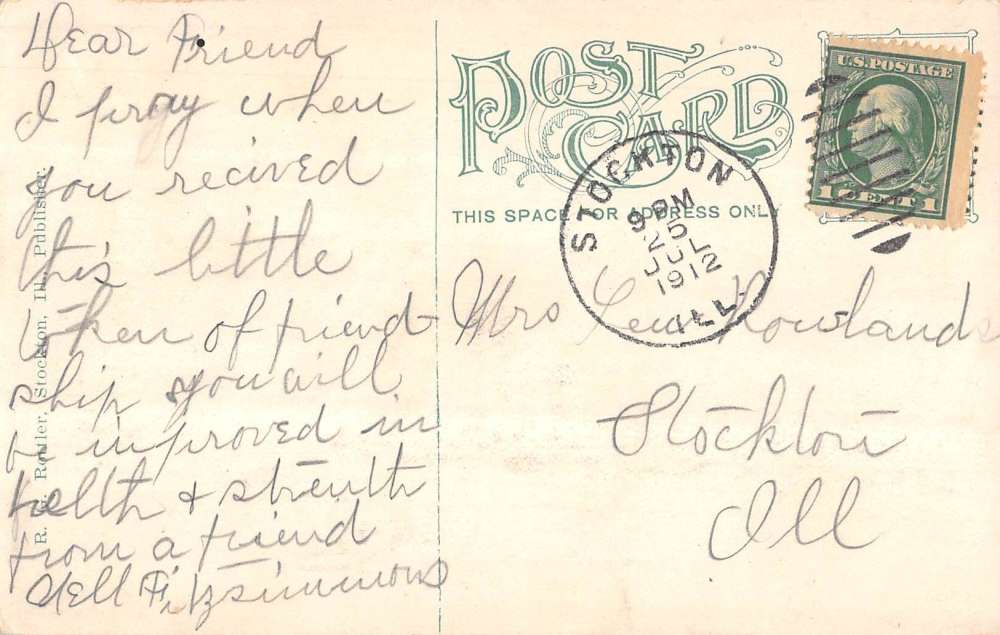 Dear Friend
I pray when
you recived
this little
token of friend
ship you will
be improved in
hellth & strenth
from a friend
Nell Fitzsimmons
R. Rowler, Stockton, Ill., Publisher.
POST CARD
THIS SPACE FOR ADDRESS ONLY
STOCKTON
9 PM
25
JUL
1912
ILL.
U.S. POSTAGE
1 CENT 1
Mrs Lew Rowlands
Stockton
Ill